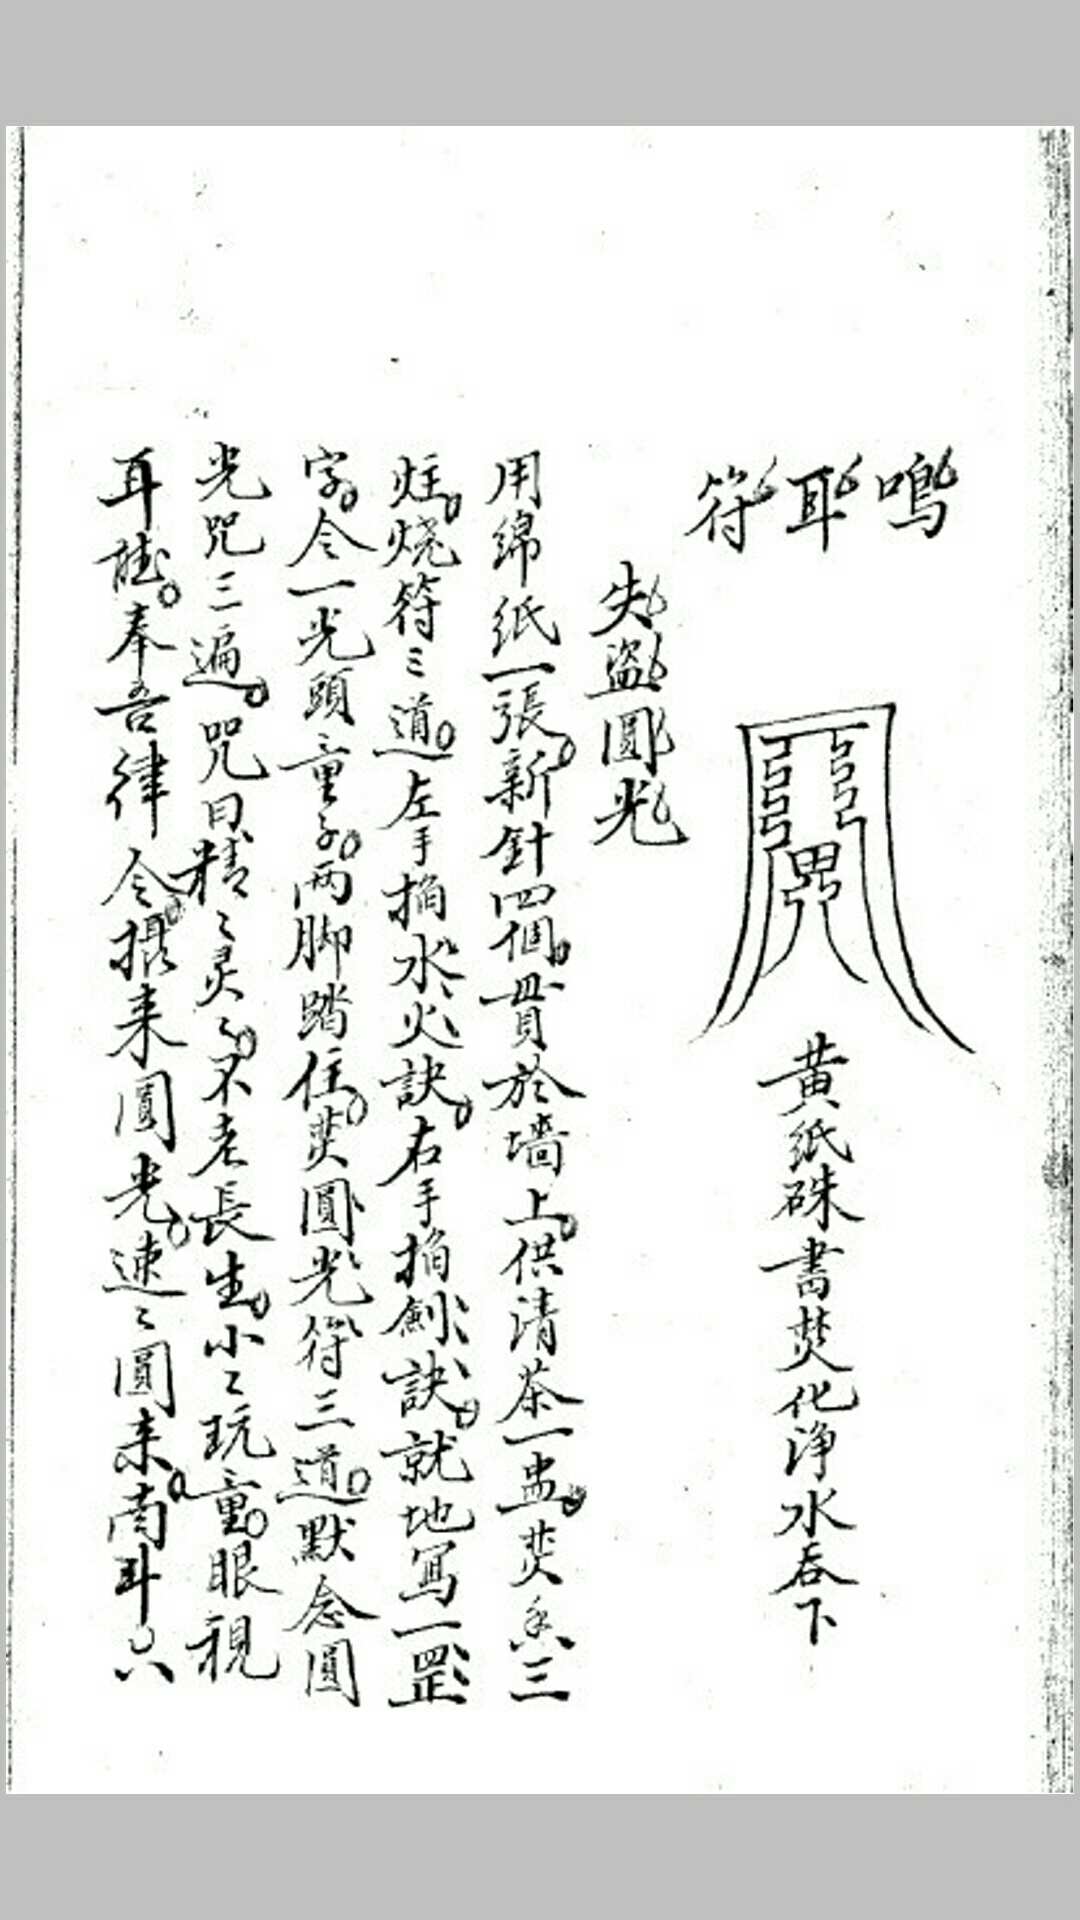 鳴耳符
黄紙硃書焚化淨水吞下
失盜圓光
用綿紙一張新針四個貫於墻上供清茶一盅焚香三
炷燒符三道左手掐水火訣右手掐劍訣就地寫一罡
字令一光頭童子两脚踏住焚圓光符三道默念圓
光咒三遍咒曰精〻灵〻不老長生小〻玩童眼視
耳聼奉吾律令攝来圓光速〻圓来南斗六